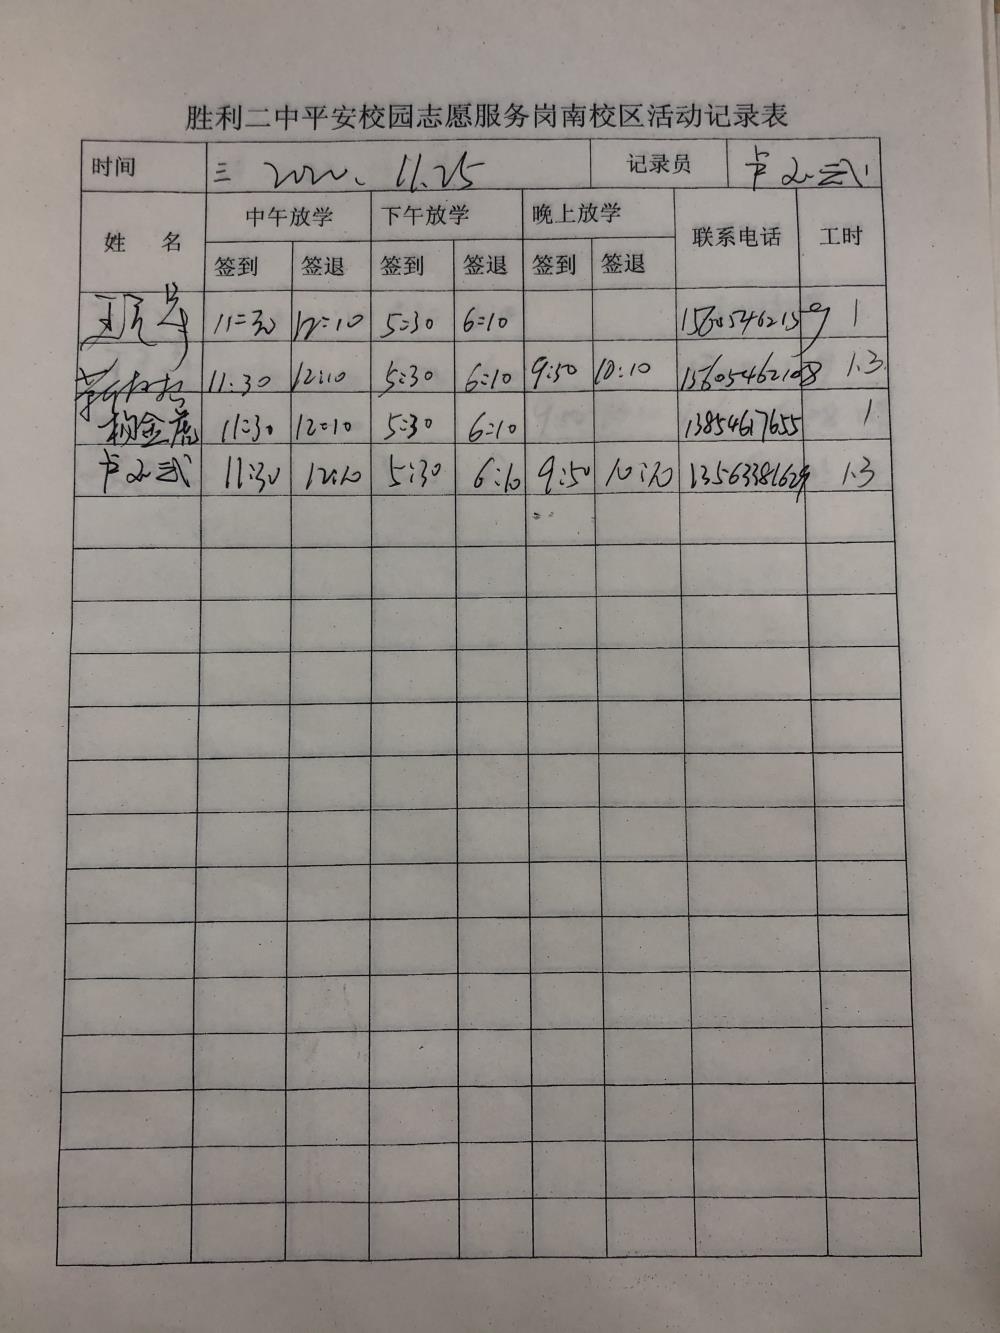 胜利二中平安校园志愿服务岗南校区活动记录表
时间 三 2020.11.25 记录员
姓 名 中午放学 下午放学 晚上放学 联系电话 工时
签到 签退 签到 签退 签到 签退
11:30 12:10 5:30 6:10 15605462159 1
11:30 12:10 5:30 6:10 9:50 10:10 15605462108 1.3
杨金虎 11:30 12:10 5:30 6:10 13854617655 1
11:30 12:10 5:30 6:10 9:50 10:10 13563381629 1.3